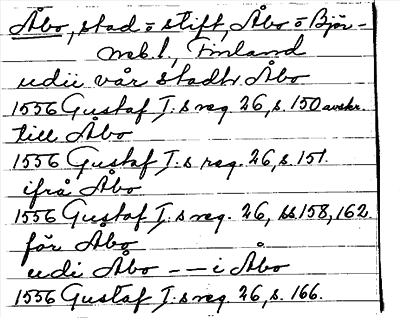 Åbo, stad o stift, Åbo o Björ-
neb.l, Finland
udii vår stadh Åbo
1556 Gustaf I:s reg. 26, s. 150 avskr.
till Åbo
1556 Gustaf I:s reg. 26, s. 151.
ifrå Åbo
1556 Gustaf I:s reg. 26, ss. 158, 162.
för Åbo
udi Åbo — — i Åbo
1556 Gustaf I:s reg. 26, s. 166.